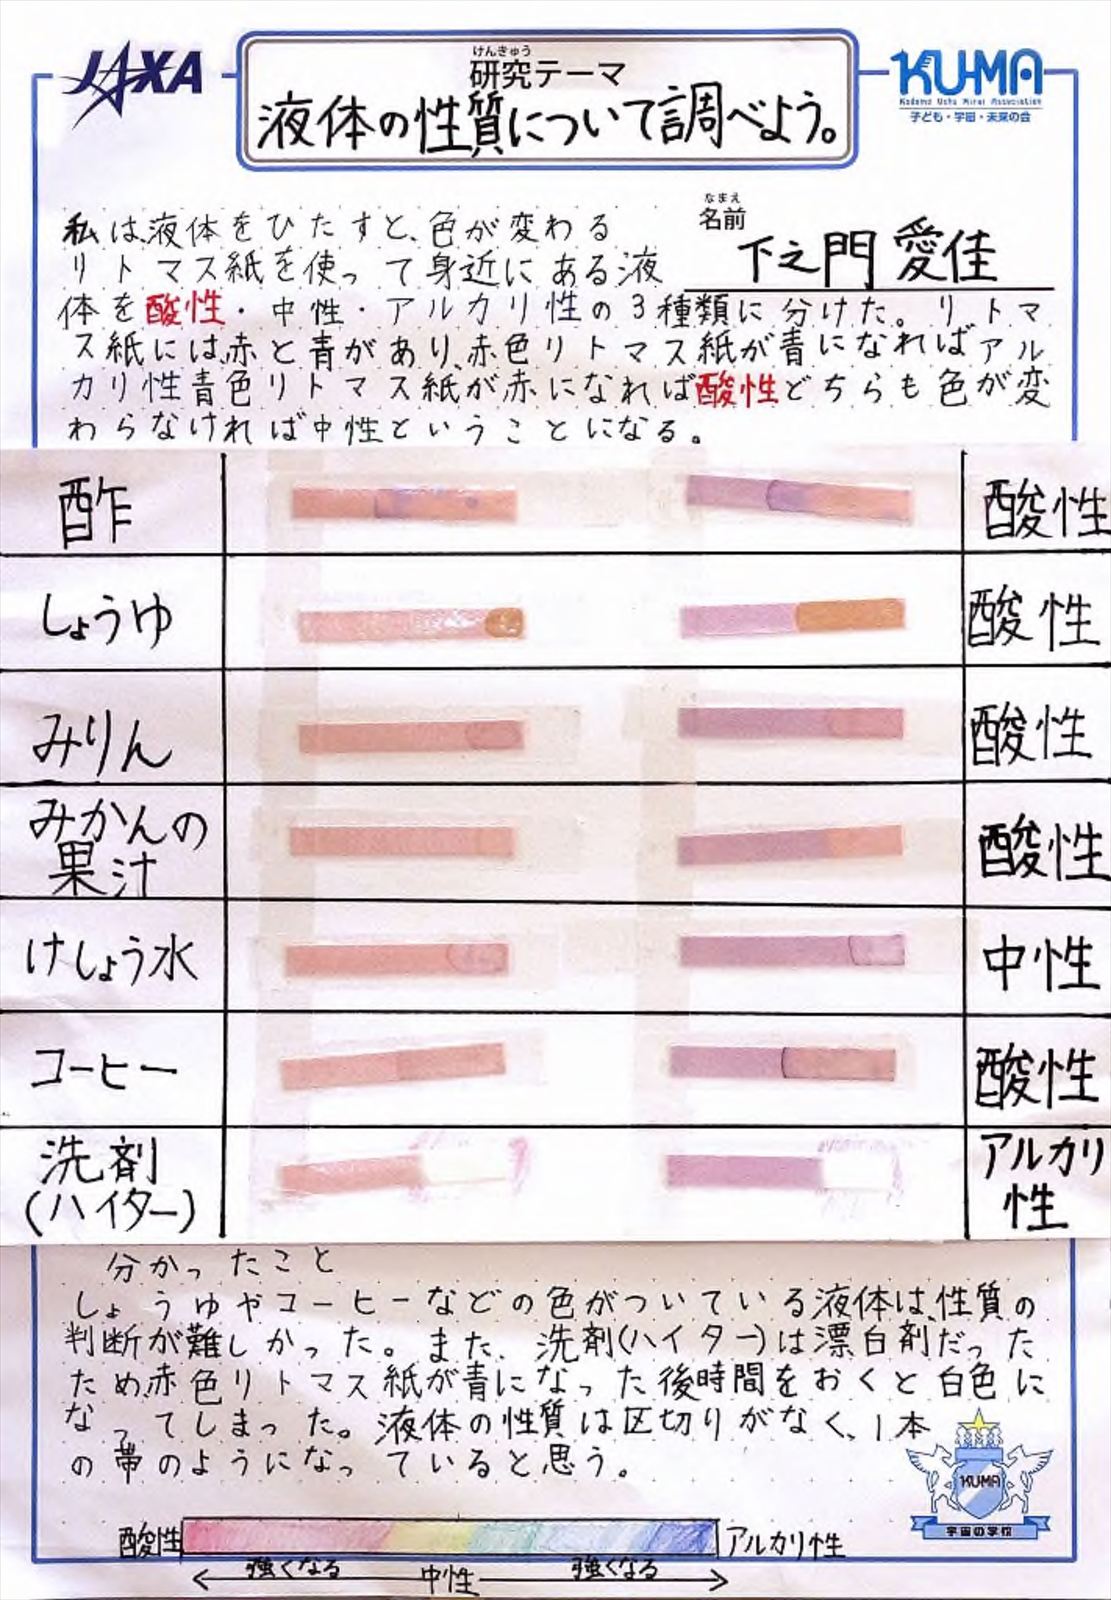 JAXA
けんきゅう
研究テーマ
液体の性質について調べよう。
KU-MA
Kodomo Uchu Mirai Association
子ども・宇宙・未来の会
なまえ
名前
下之門 愛佳
私は、液体をひたすと、色が変わる
リトマス紙を使って身近にある液
体を酸性・中性・アルカリ性の3種類に分けた。リトマ
ス紙には、赤と青があり、赤色リトマス紙が青になればアル
カリ性青色リトマス紙が赤になれば酸性どちらも色が変
わらなければ中性ということになる。
酢 酸性
しょうゆ 酸性
みりん 酸性
みかんの
果汁 酸性
けしょう水 中性
コーヒー 酸性
洗剤
(ハイター) アルカリ
性
分かったこと
しょうゆやコーヒーなどの色がついている液体は、性質の
判断が難しかった。また、洗剤(ハイター)は漂白剤だった
ため赤色リトマス紙が青になった後時間をおくと白色に
なってしまった。液体の性質は区切りがなく、1本
の帯のようになっていると思う。
KUMA
宇宙の学校
酸性 アルカリ性
強くなる 中性 強くなる